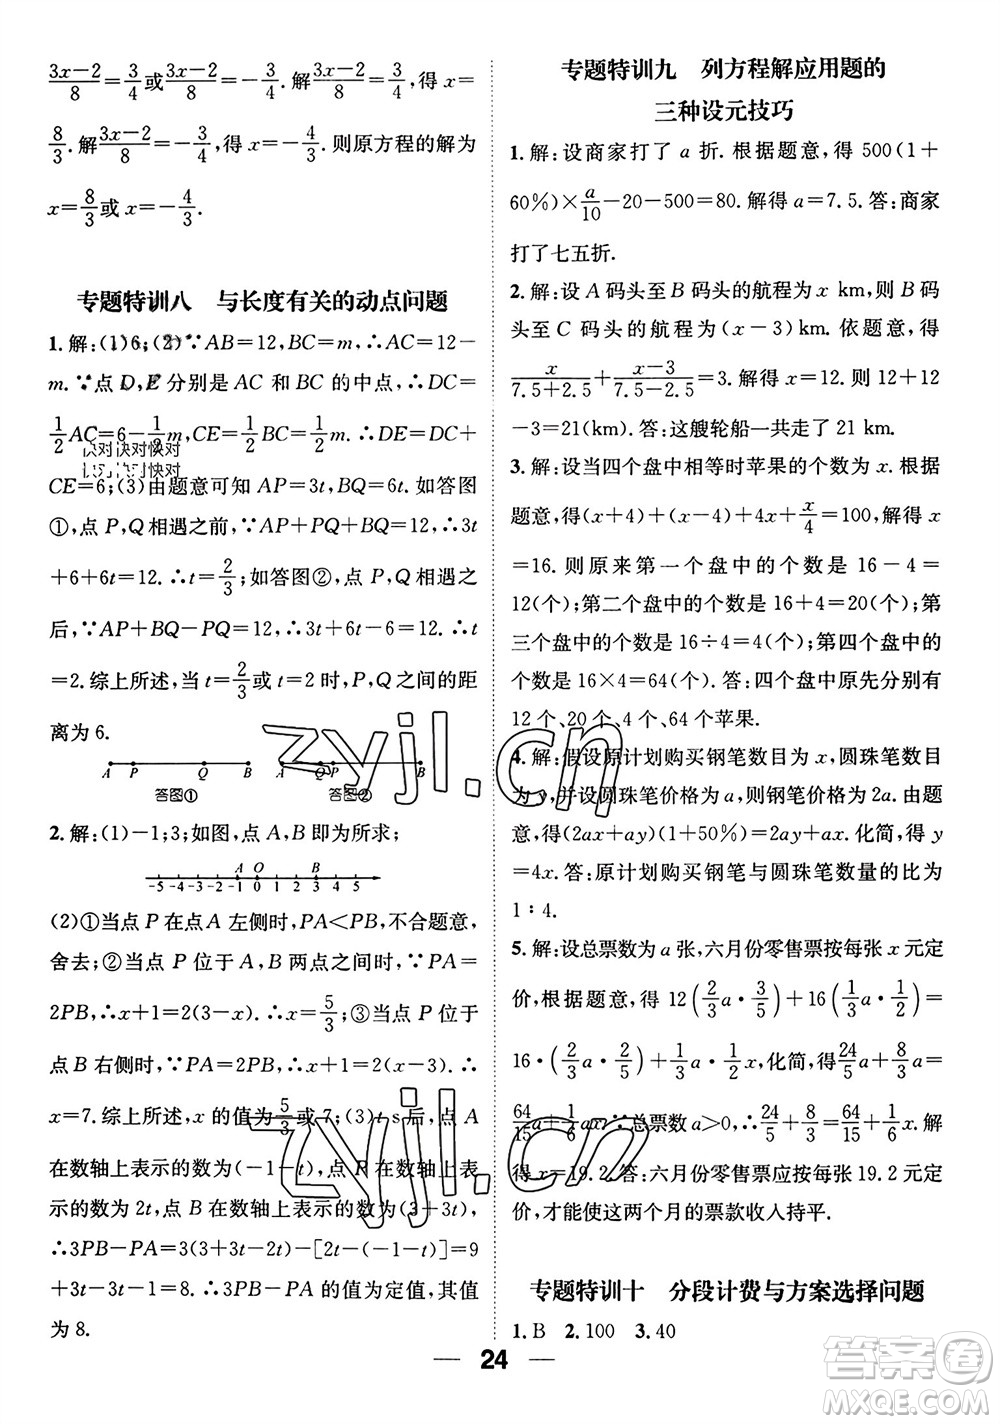 (3x-2)/8=3/4或(3x-2)/8=-3/4. 解(3x-2)/8=3/4,得 x=
8/3. 解(3x-2)/8=-3/4,得 x=-4/3. 则原方程的解为
x=8/3或x=-4/3.
专题特训八 与长度有关的动点问题
1.解:(1)6;(2)∵AB=12,BC=m,∴AC=12-
m.∵点 D,E 分别是 AC 和 BC 的中点,∴DC=
1/2AC=6-1/2m,CE=1/2BC=1/2m,∴DE=DC+
CE=6;(3)由题意可知 AP=3t,BQ=6t.如答图
①,点 P,Q 相遇之前,∵AP+PQ+BQ=12,∴3t
+6+6t=12.∴t=2/3;如答图②,点 P,Q 相遇之
后,∵AP+BQ-PQ=12,∴3t+6t-6=12.∴t
=2.综上所述,当 t=2/3或 t=2 时,P,Q 之间的距
离为 6.
A P Q B
答图①
A Q P B
答图②
2.解:(1)-1;3;如图,点 A,B 即为所求;
A O B
-5 -4 -3 -2 -1 0 1 2 3 4 5
(2)①当点 P 在点A 左侧时,PA<PB,不合题意,
舍去;②当点 P 位于 A,B 两点之间时,∵PA=
2PB,∴x+1=2(3-x).∴x=5/3;③当点 P 位于
点 B 右侧时,∵PA=2PB,∴x+1=2(x-3).∴
x=7.综上所述,x 的值为5/3或 7;(3)t s后,点 A
在数轴上表示的数为(-1-t),点 P 在数轴上表
示的数为 2t,点 B 在数轴上表示的数为(3+3t),
∴3PB-PA=3(3+3t-2t)-[2t-(-1-t)]=9
+3t-3t-1=8.∴3PB-PA 的值为定值,其值
为 8.
专题特训九 列方程解应用题的
三种设元技巧
1.解:设商家打了 a 折.根据题意,得 500(1+
60%)×a/10-20-500=80.解得 a=7.5.答:商家
打了七五折.
2.解:设 A 码头至 B 码头的航程为 x km,则 B 码
头至 C 码头的航程为(x-3)km.依题意,得
x/(7.5+2.5)+(x-3)/(7.5-2.5)=3.解得 x=12.则 12+12
-3=21(km).答:这艘轮船一共走了 21 km.
3.解:设当四个盘中相等时苹果的个数为 x.根据
题意,得(x+4)+(x-4)+4x+x/4=100,解得 x
=16.则原来第一个盘中的个数是 16-4=
12(个);第二个盘中的个数是 16+4=20(个);第
三个盘中的个数是 16÷4=4(个);第四个盘中的
个数是 16×4=64(个).答:四个盘中原先分别有
12 个、20 个、4 个、64 个苹果.
4.解:假设原计划购买钢笔数目为 x,圆珠笔数目
为 y,并设圆珠笔价格为 a,则钢笔价格为 2a.由题
意,得(2ax+ay)(1+50%)=2ay+ax.化简,得 y
=4x.答:原计划购买钢笔与圆珠笔数量的比为
1∶4.
5.解:设总票数为 a 张,六月份零售票按每张 x 元定
价,根据题意,得 12(2/3a·3/5)+16(1/3a·1/2)=
16·(2/3a·2/5)+1/3a·1/2x,化简,得24/5a+8/3a=
64/15a+1/6ax.∵总票数 a>0,∴24/5+8/3=64/15+1/6x.解
得 x=19.2.答:六月份零售票应按每张 19.2 元定
价,才能使这两个月的票款收入持平.
专题特训十 分段计费与方案选择问题
1.B 2.100 3.40
24
zyjl.cn
zyjl.cn
答案圈
MXQE.COM